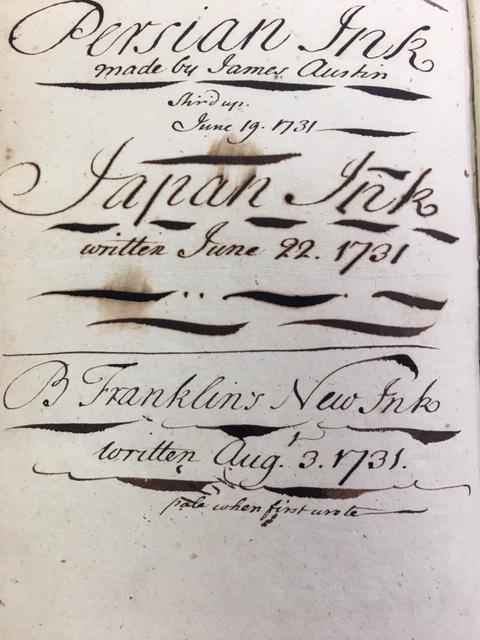 Persian Ink
made by James Austin
Stir'd up.
June 19. 1731
Japan Ink
written June 22. 1731
B Franklin's New Ink
written Aug. 3. 1731.
pale when first wrote